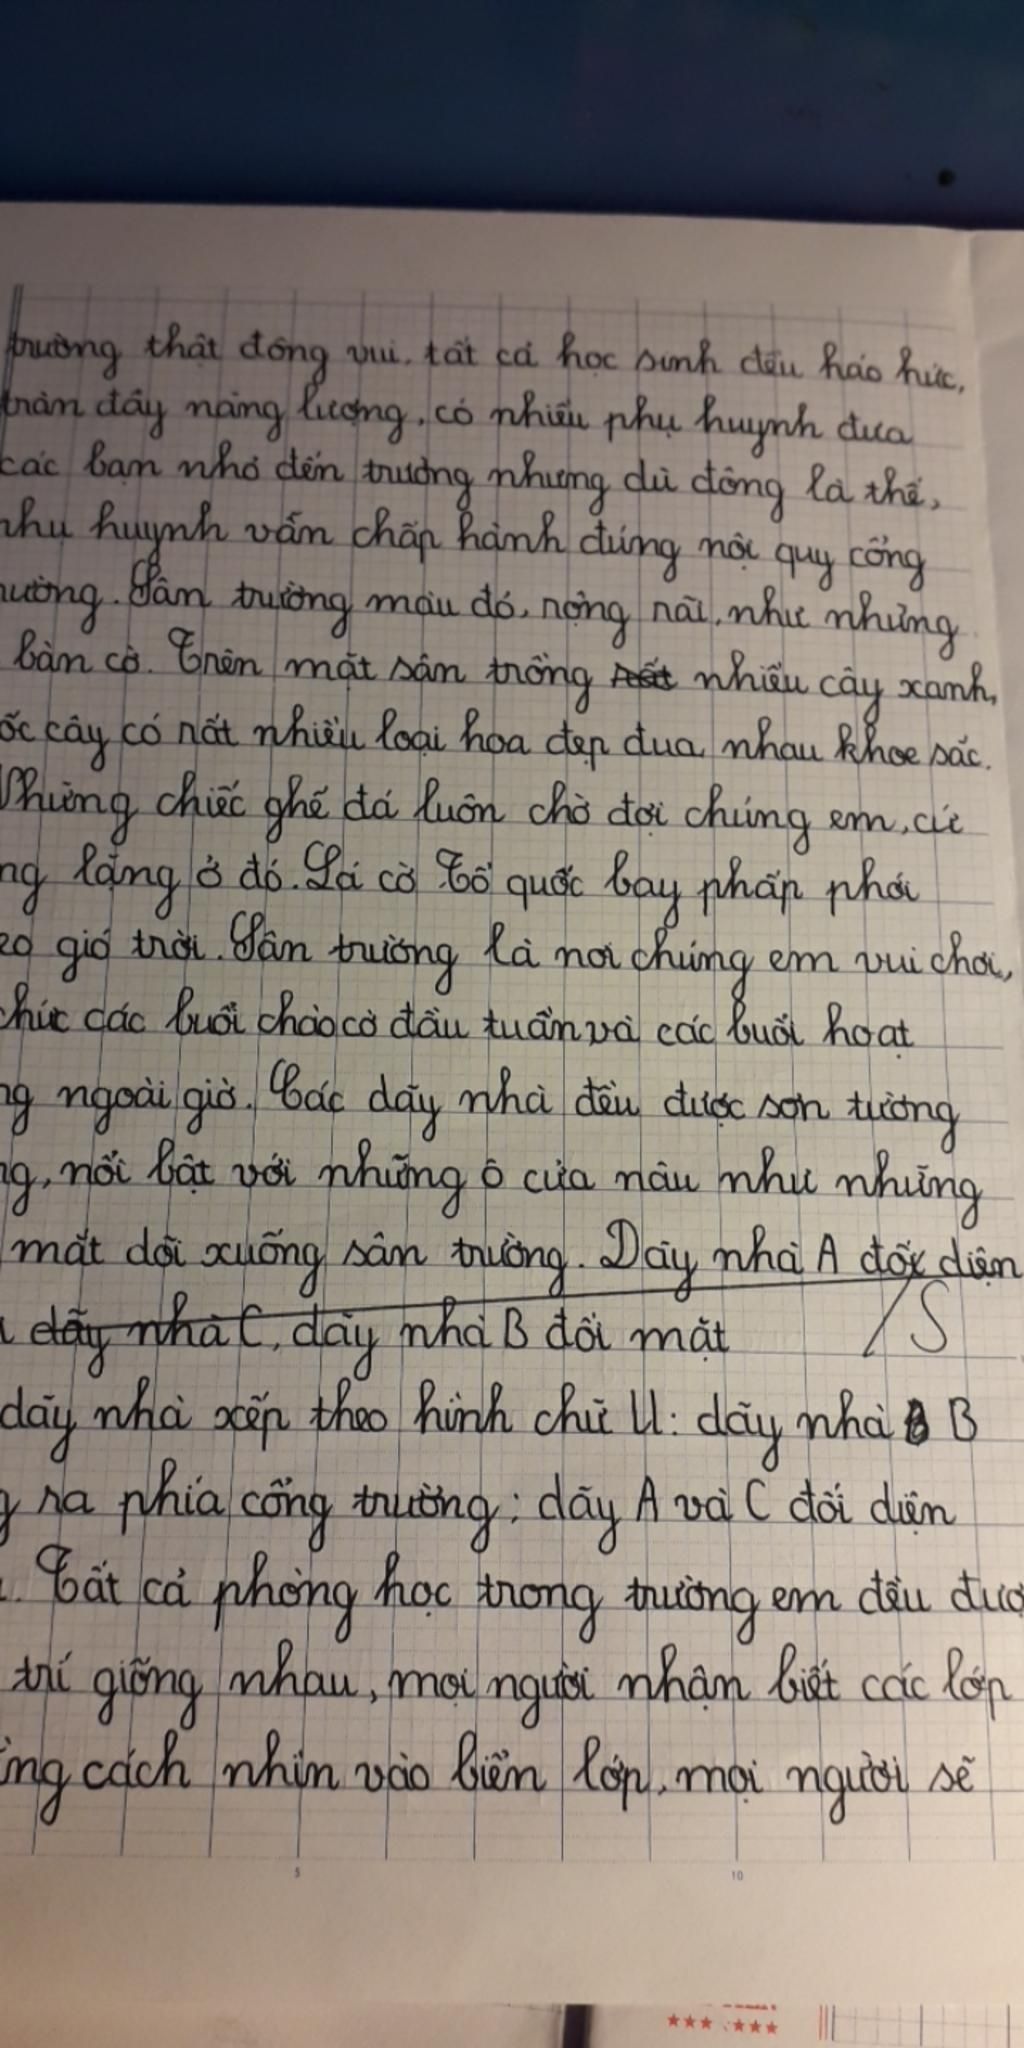 trường thật đông vui. tất cả học sinh đều háo hức,
tràn đầy năng lượng, có nhiều phụ huynh đưa
các bạn nhỏ đến trường nhưng dù đông là thế,
phụ huynh vẫn chấp hành đúng nội quy cổng
ường. Sân trường màu đỏ, rộng rãi, như những
bàn cờ. Trên mặt sân trồng rất nhiều cây xanh,
ốc cây có rất nhiều loại hoa đẹp đua nhau khoe sắc.
Những chiếc ghế đá luôn chờ đợi chúng em, cứ
ng lặng ở đó. Lá cờ Tổ quốc bay phấp phới
eo gió trời. Sân trường là nơi chúng em vui chơi,
chức các buổi chào cờ đầu tuần và các buổi hoạt
ng ngoài giờ. Các dãy nhà đều được sơn tường
ng, nổi bật với những ô cửa nâu như những
mắt dõi xuống sân trường. Dãy nhà A đối diện
dãy nhà C, dãy nhà B đối mặt /S
dãy nhà xếp theo hình chữ U: dãy nhà B
g ra phía cổng trường; dãy A và C đối diện
. Tất cả phòng học trong trường em đều đượ
trí giống nhau, mọi người nhận biết các lớp
ằng cách nhìn vào biển lớp, mọi người sẽ
5 10